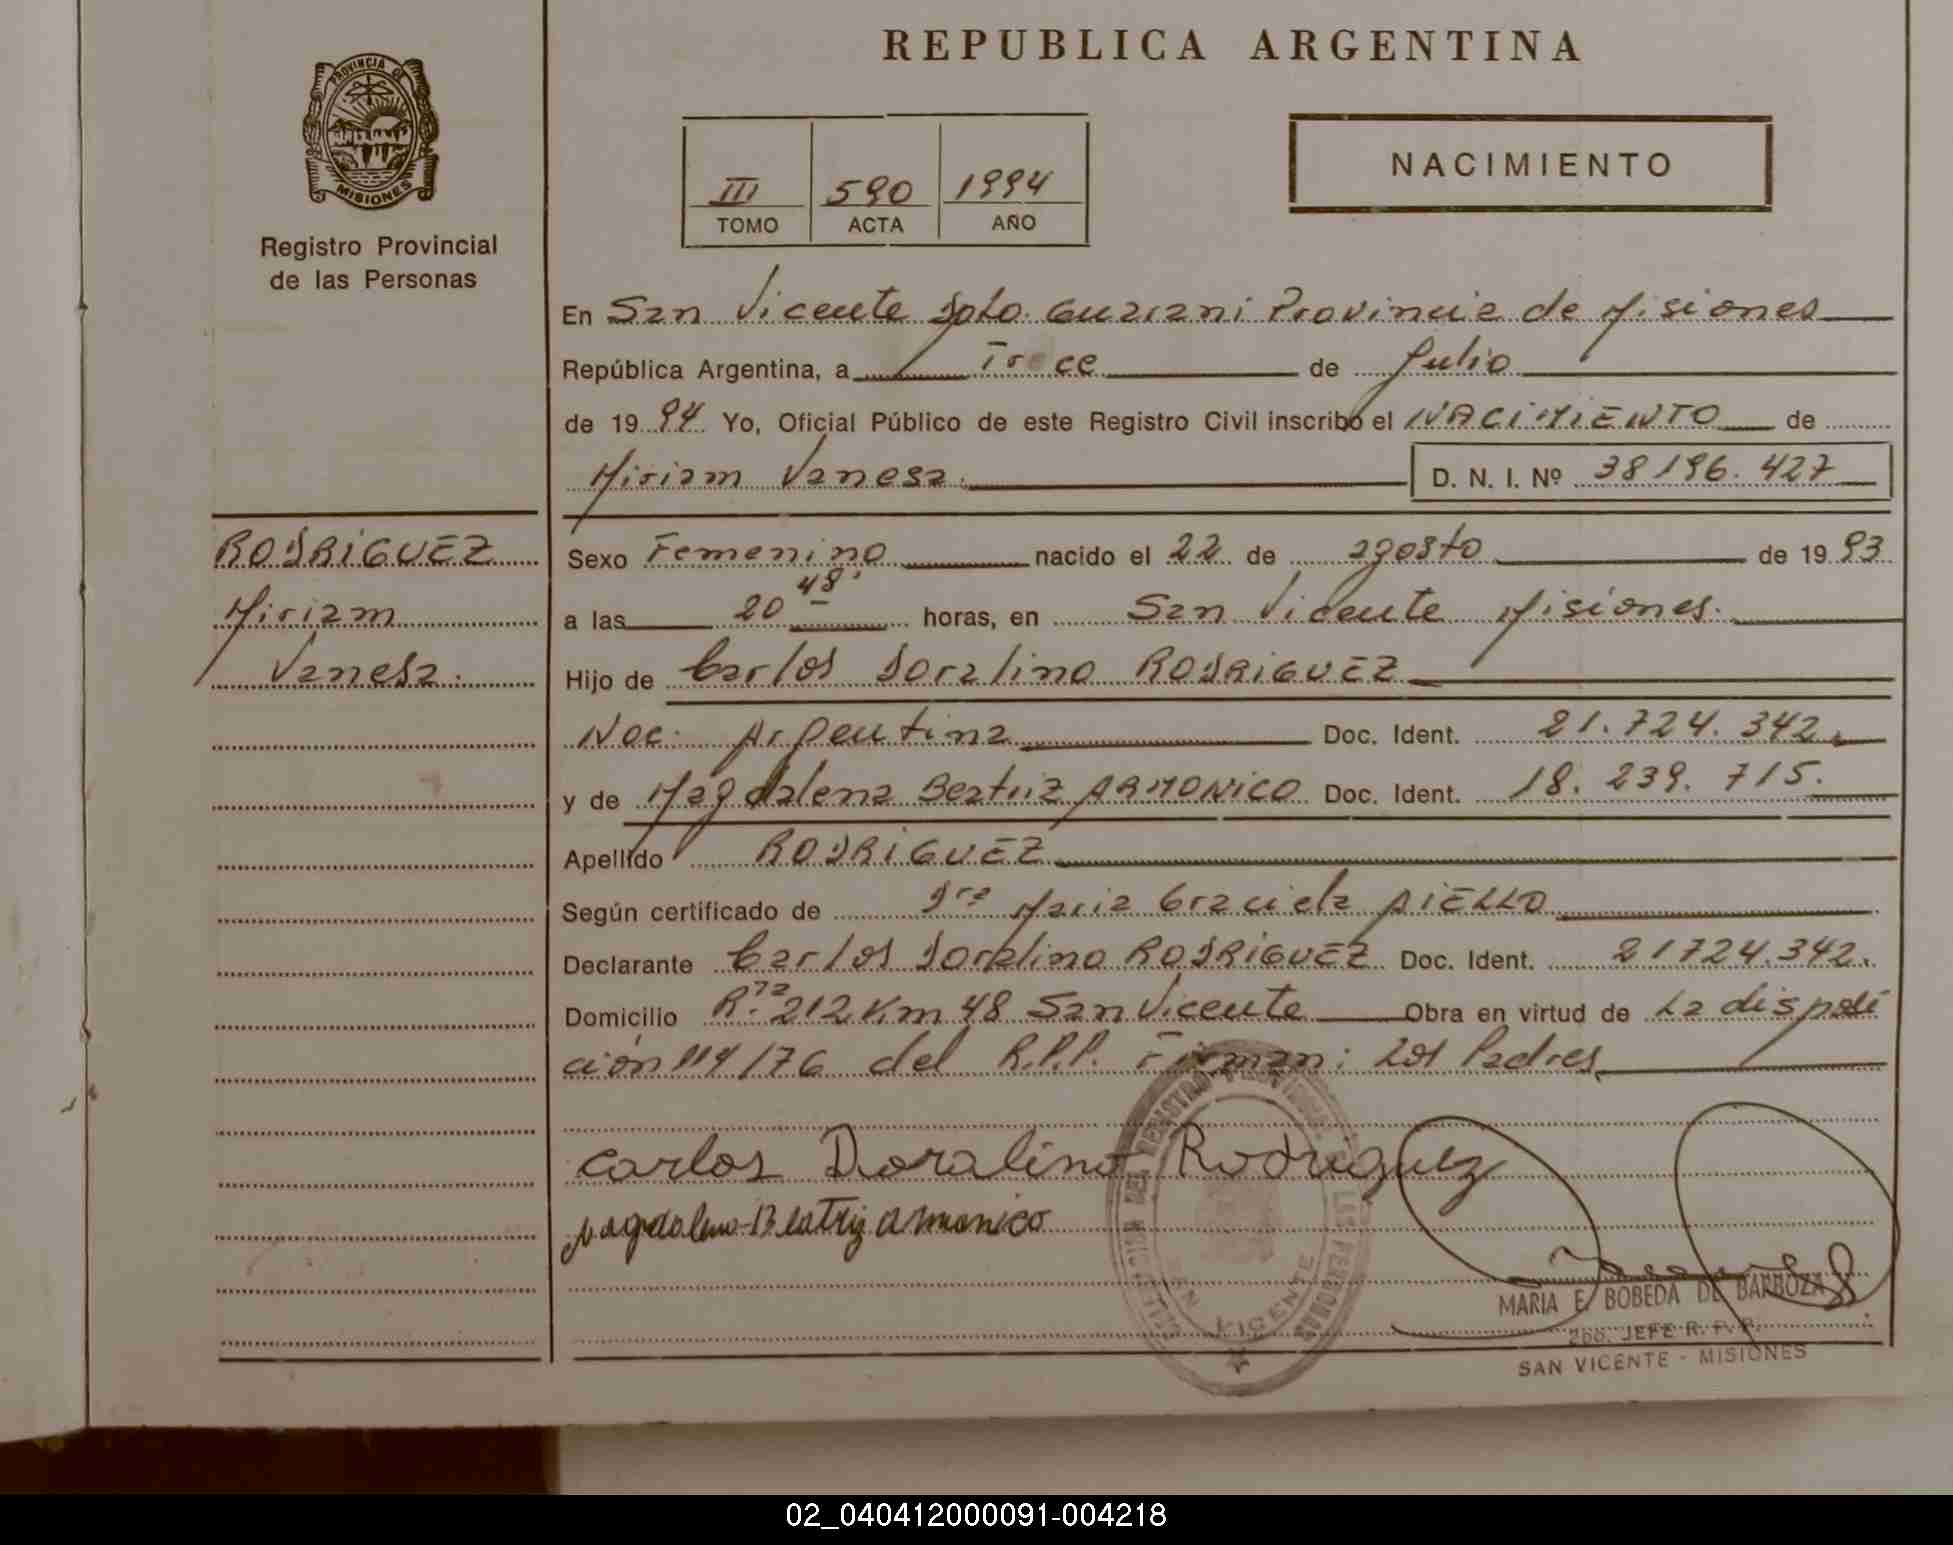 REPUBLICA ARGENTINA
PROVINCIA DE
MISIONES
Registro Provincial
de las Personas
III 590 1994
TOMO ACTA AÑO
NACIMIENTO
En San Vicente Dpto. Guarani Provincia de Misiones
República Argentina, a Trece de Julio
de 1994 Yo, Oficial Público de este Registro Civil inscribo el NACIMIENTO de
Miriam Vanesa. D. N. I. Nº 38196.427
RODRIGUEZ
Miriam
Vanesa.
Sexo Femenino nacido el 22 de agosto de 1993
a las 20 48' horas, en San Vicente Misiones.
Hijo de Carlos Doralino RODRIGUEZ
Nac. Argentina Doc. Ident. 21.724.342.
y de Magdalena Beatriz ARMONICO Doc. Ident. 18.239.715.
Apellido RODRIGUEZ
Según certificado de Dra Maria Graciela AIELLO
Declarante Carlos Doralino RODRIGUEZ Doc. Ident. 21724.342.
Domicilio R.ta 212 Km 48 San Vicente Obra en virtud de La disposi
ción 114/76 del R.P.P. Firman: Los Padres
Carlos Doralino Rodriguez
Magdalena Beatriz armonico
MARIA E. BOBEDA DE BARBOZA
JEFE R. P. P.
SAN VICENTE - MISIONES
02_040412000091-004218